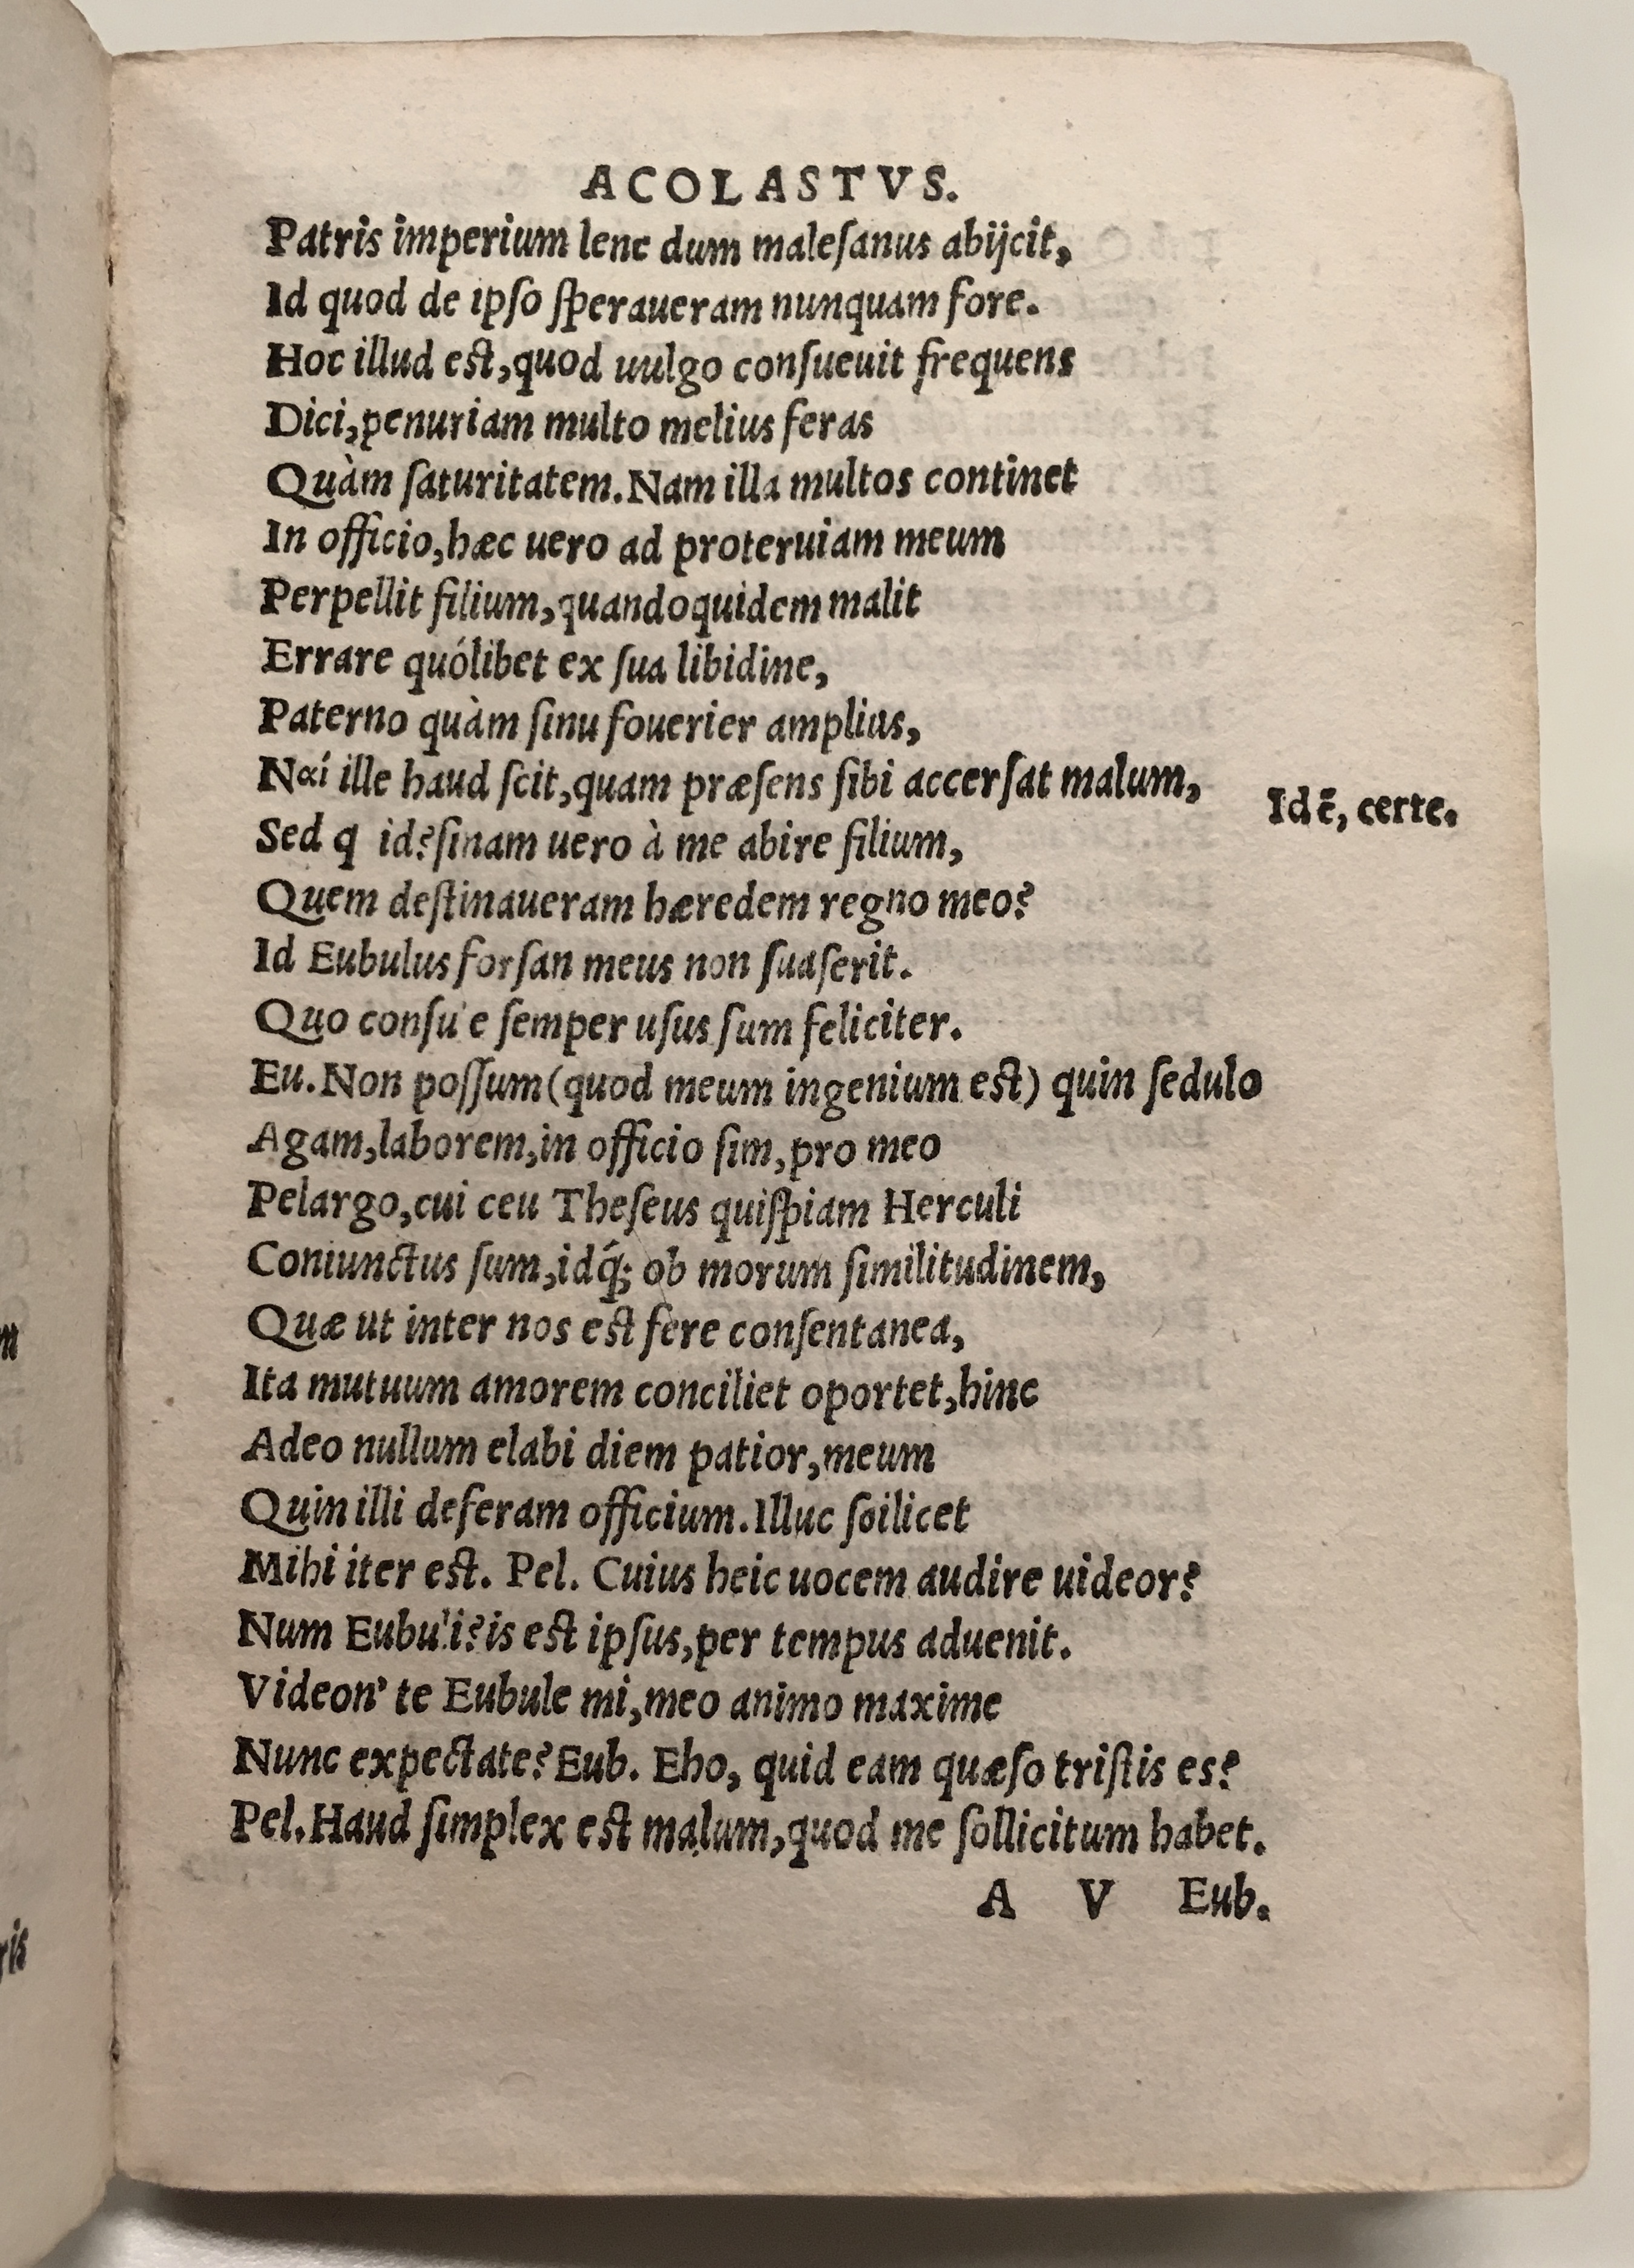 ACOLASTVS.
Patris imperium lene dum maleſanus abijcit,
Id quod de ipſo ſperaueram nunquam fore.
Hoc illud est, quod uulgo conſueuit frequens
Dici, penuriam multo melius feras
Quàm ſaturitatem. Nam illa multos continet
In officio, hæc uero ad proteruiam meum
Perpellit filium, quandoquidem malit
Errare quólibet ex ſua libidine,
Paterno quàm ſinu fouerier amplius,
Nαί ille haud ſcit, quam præſens ſibi accerſat malum,
Id ē, certe.
Sed q id? ſinam uero à me abire filium,
Quem deſtinaueram hæredem regno meo?
Id Eubulus forſan meus non ſuaſerit.
Quo conſu e ſemper uſus ſum feliciter.
Eu. Non poſſum (quod meum ingenium est) quin ſedulo
Agam, laborem, in officio ſim, pro meo
Pelargo, cui ceu Theſeus quiſpiam Herculi
Coniunctus ſum, idq́; ob morum ſimilitudinem,
Quæ ut inter nos est fere conſentanea,
Ita mutuum amorem conciliet oportet, hinc
Adeo nullum elabi diem patior, meum
Quin illi deferam officium. Illuc ſoilicet
Mihi iter est. Pel. Cuius heic uocem audire uideor?
Num Eubuli? is est ipſus, per tempus aduenit.
Videon' te Eubule mi, meo animo maxime
Nunc expectate? Eub. Eho, quid eam quæſo triſtis es?
Pel. Haud ſimplex est malum, quod me ſollicitum habet.
A V Eub.
m
ris